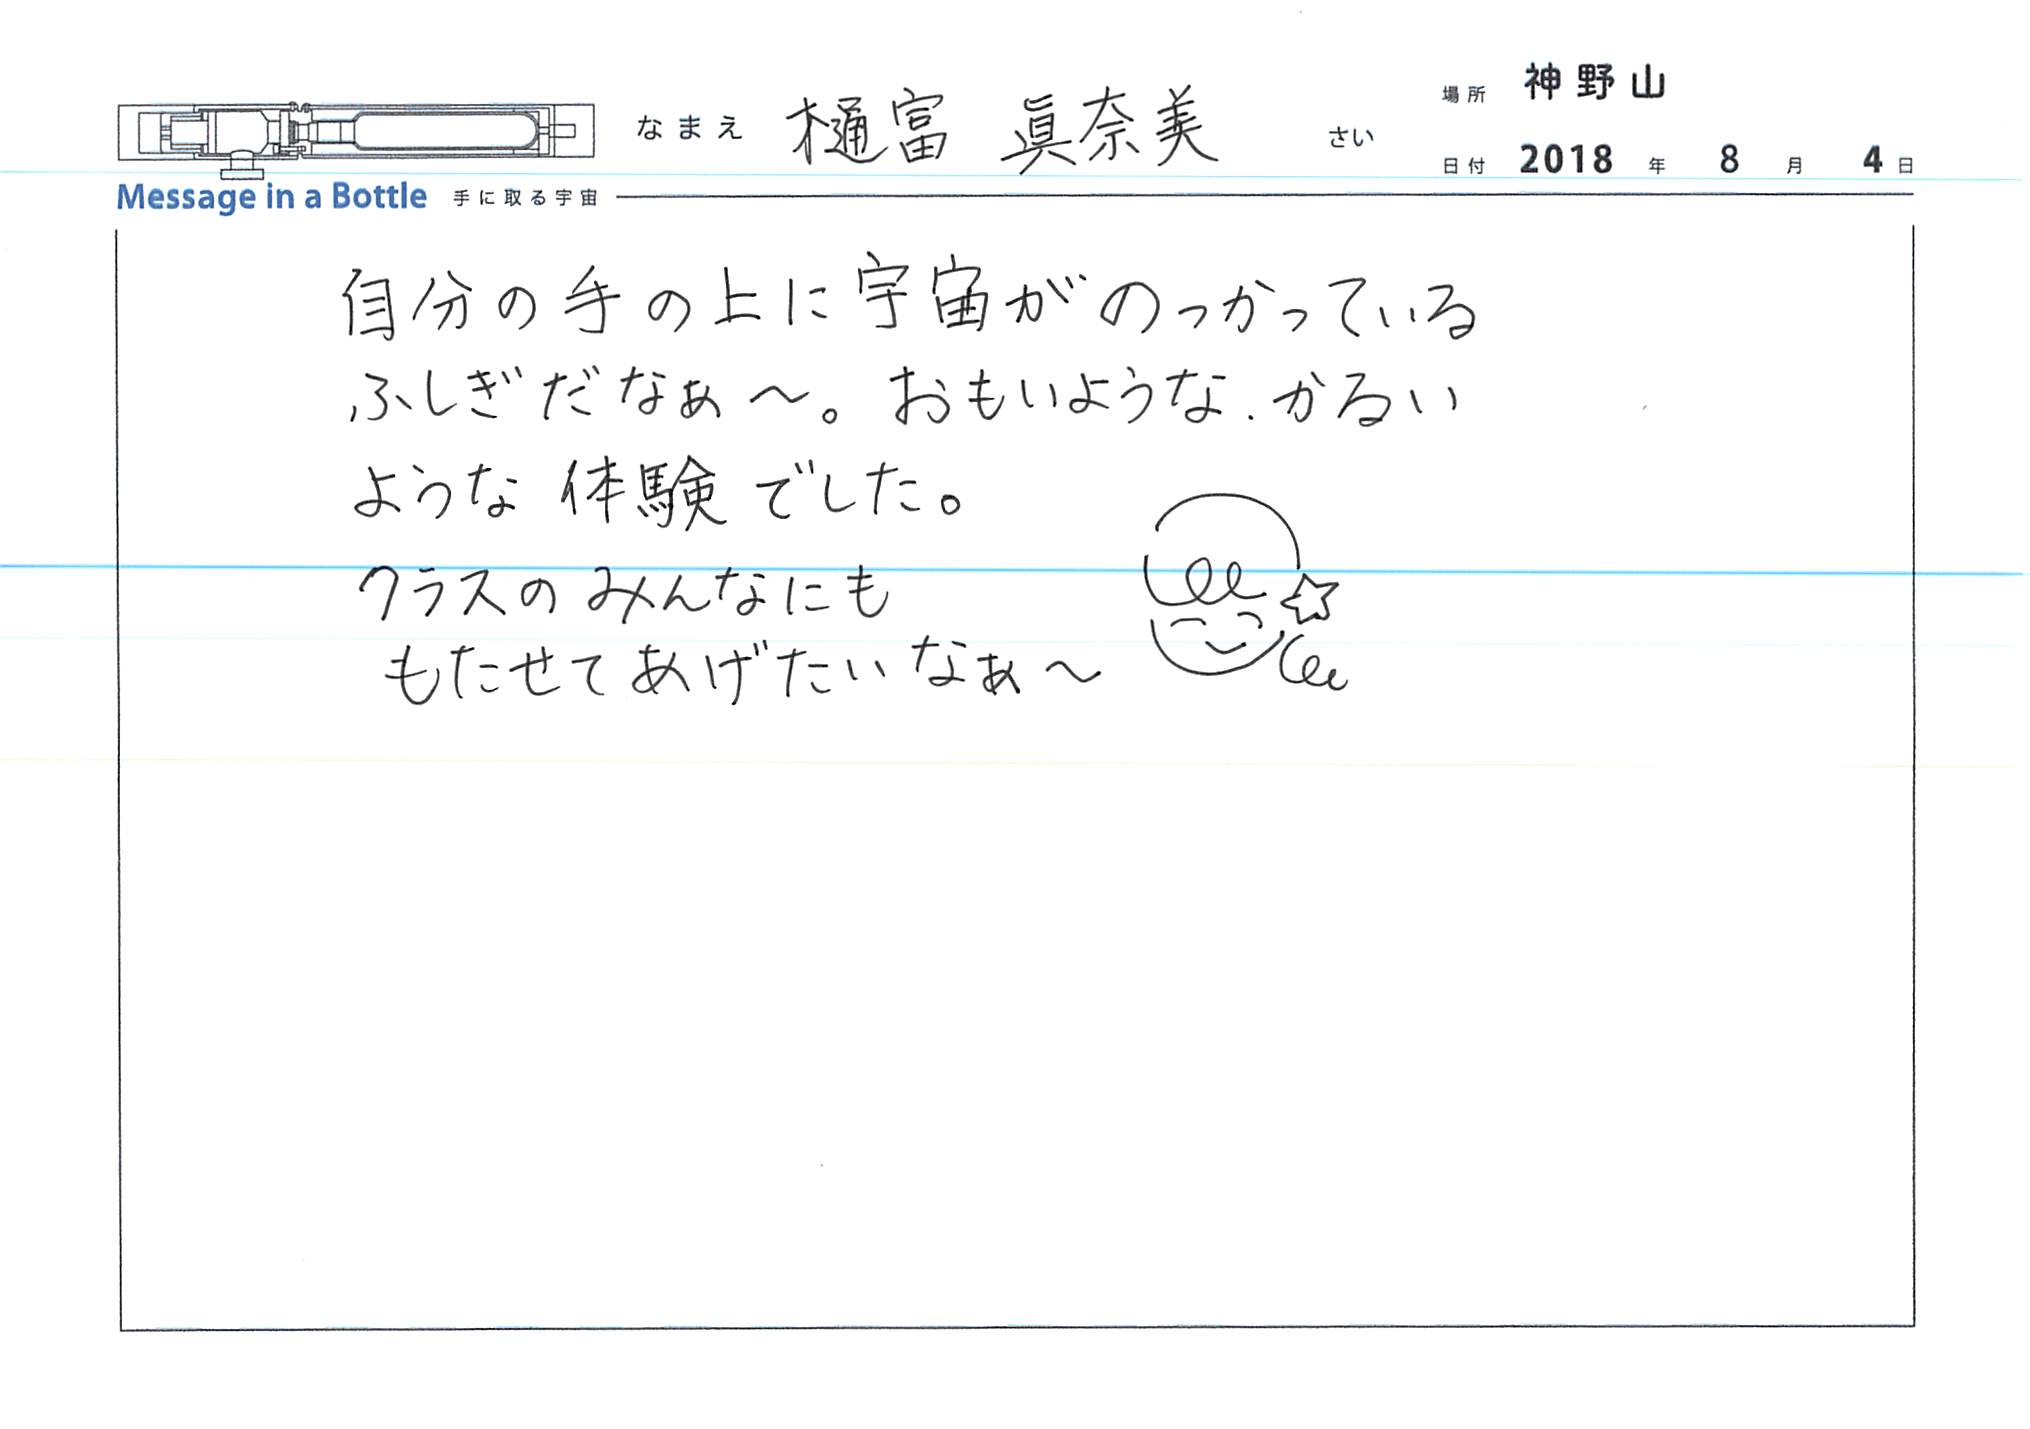 なまえ 樋富 眞奈美 さい
場所 神野山
日付 2018 年 8 月 4 日
Message in a Bottle 手に取る宇宙
自分の手の上に宇宙がのっかっている
ふしぎだなぁ〜。おもいような、かるい
ような 体験でした。
クラスのみんなにも
もたせてあげたいなぁ〜